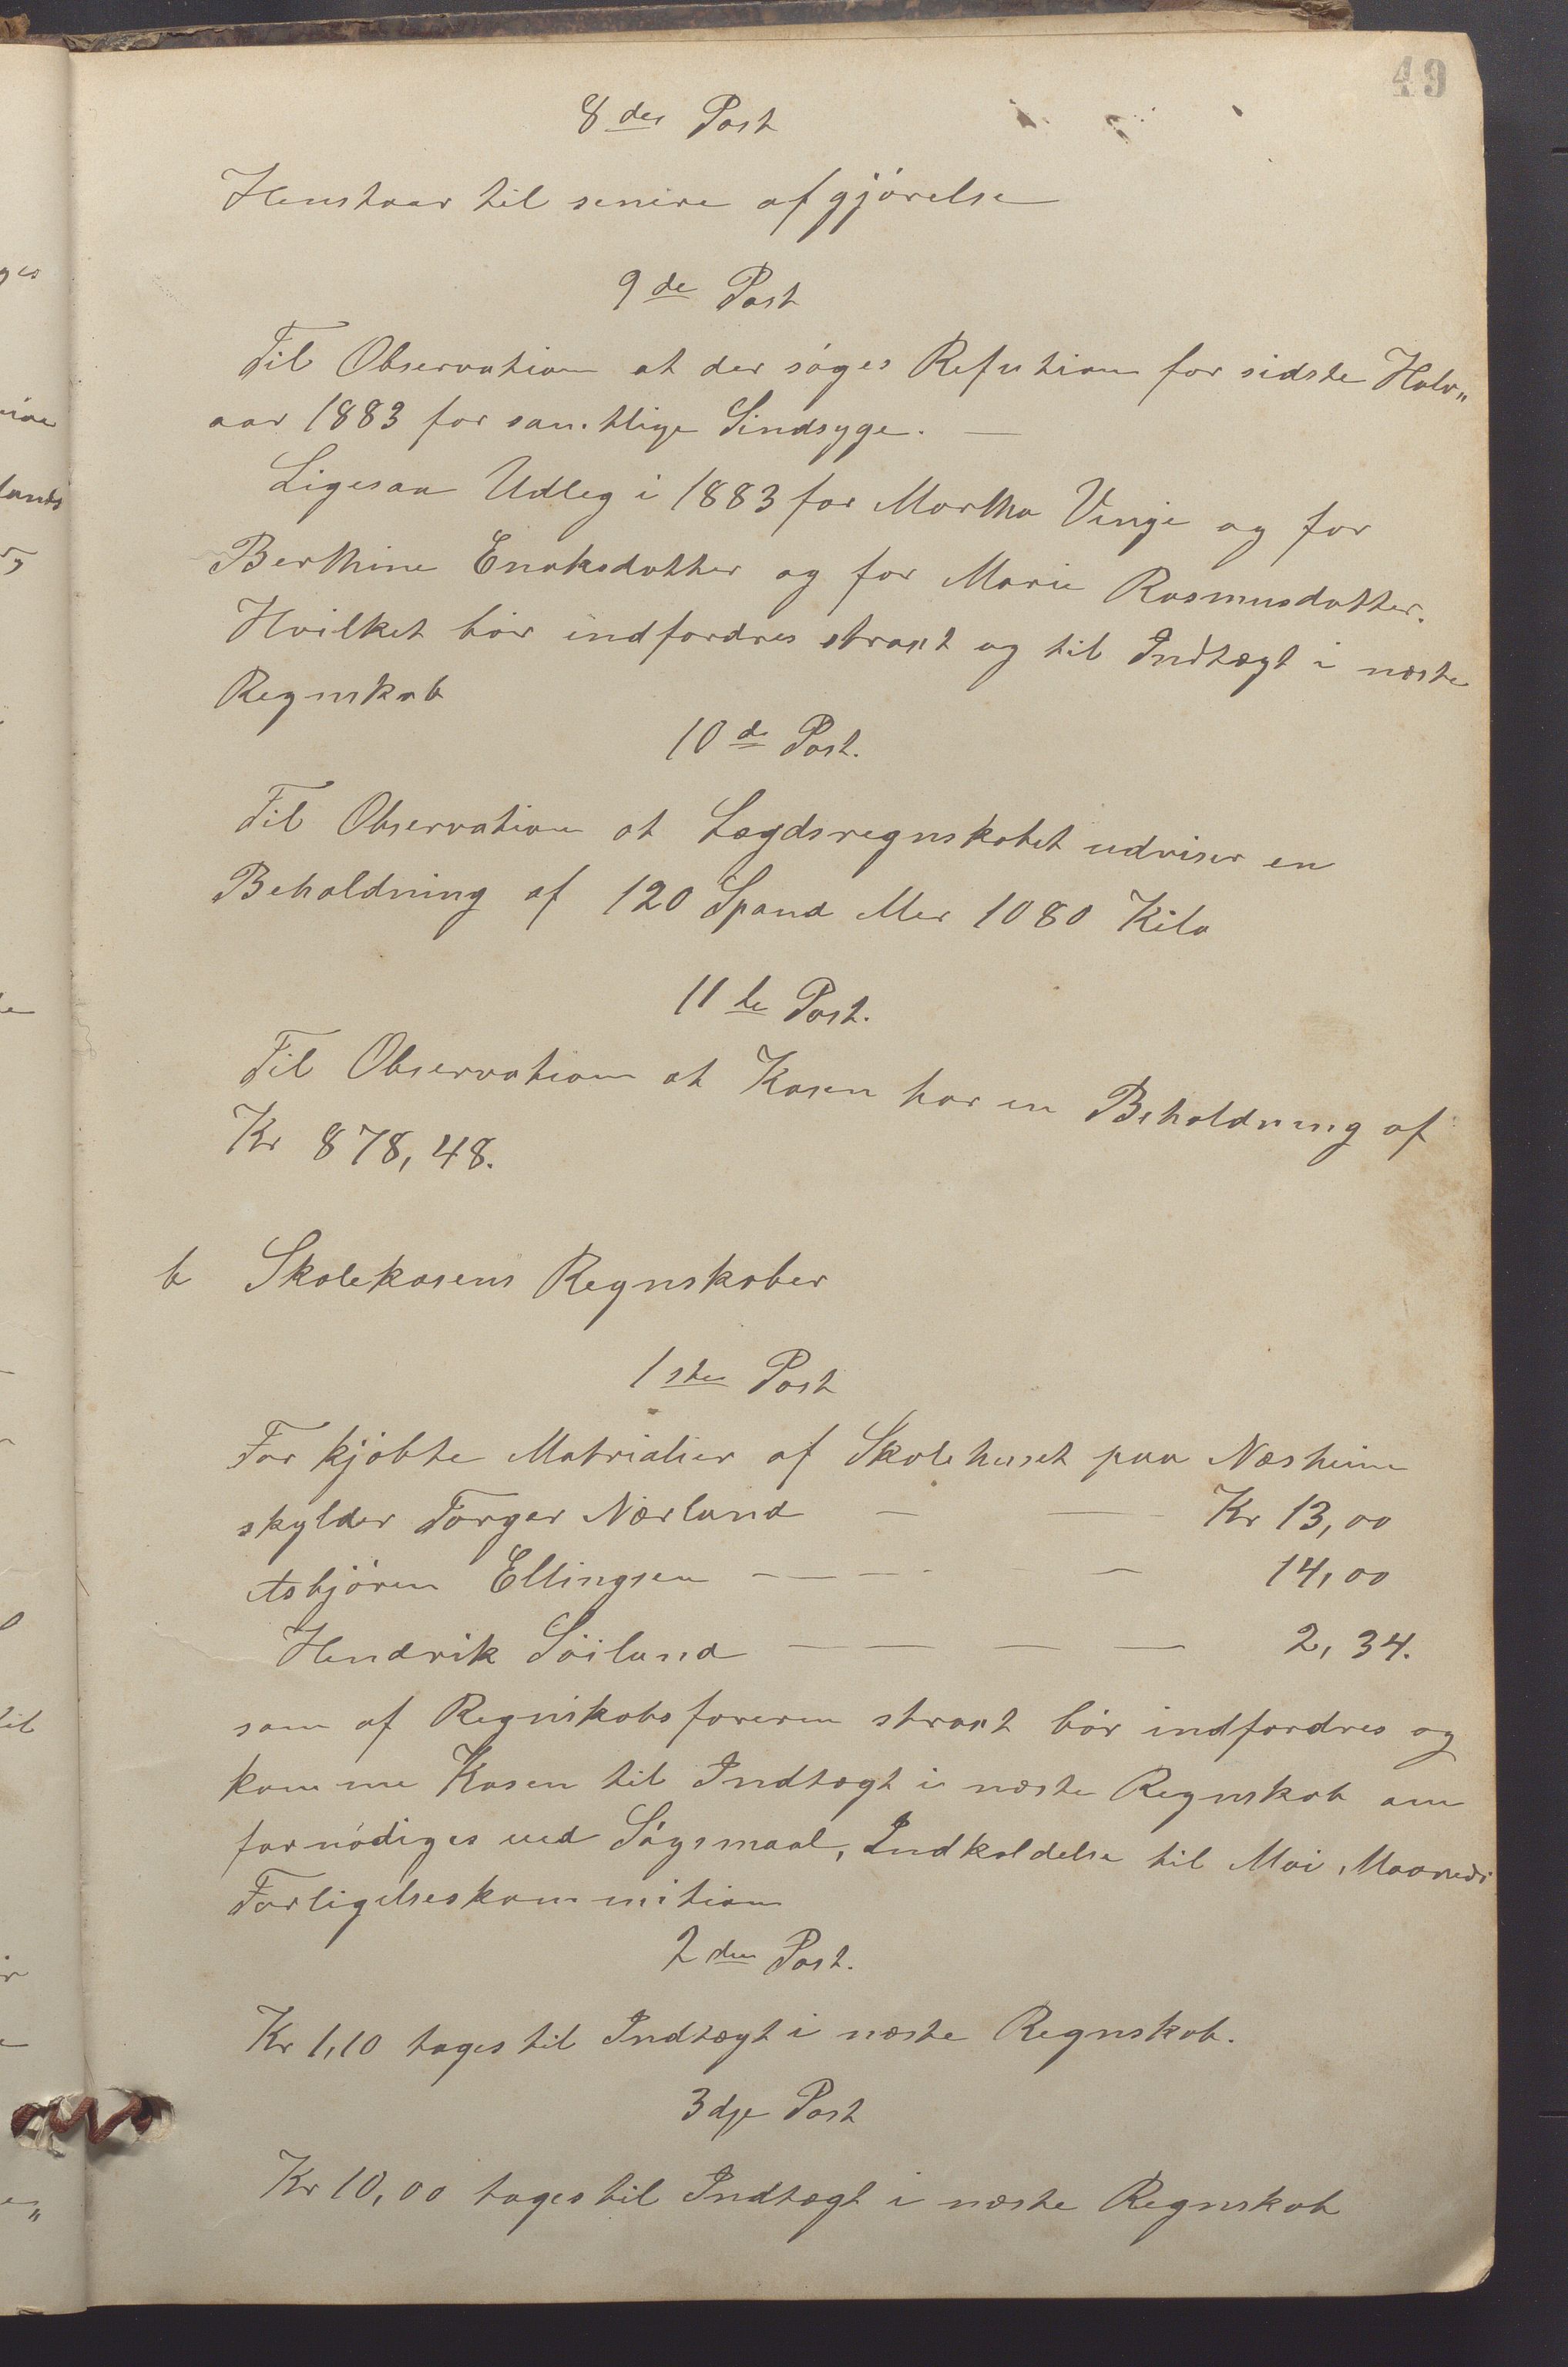 49
8des Post
Henstaar til senere afgjörelse
9de Post
Til Observation at der söges Refution for sidste Halv„
aar 1883 for samtlige Sindsyge. —
Ligesaa Udleg i 1883 for Martha Vinje og for
Berthine Enoksdatter og for Marie Rasmusdatter.
Hvilket bör indfordres straxt og til Indtægt i næste
Regnskab
10de Post.
Til Observation at Lægdsregnskabet udviser en
Beholdning af 120 Spand eller 1080 Kilo
11te Post.
Til Observation at Kasen har en Beholdning af
Kr 878,48.
b Skolekasens Regnskaber
1ste Post
For kjöbte Matrialier af Skolehuset paa Næsheim
skylder Torger Nærland — — Kr 13,00
Asbjörn Ellingsen — — — — 14,00
Hendrik Söiland — — — — 2,34.
som af Regnskabsföreren straxt bör indfordres og
komme Kasen til Indtægt i næste Regnskab om
fornödiges ved Sögsmaal, Indkaldelse til Mai Maaneds
Forligelseskommition
2den Post.
Kr 1,10 tages til Indtægt i næste Regnskab.
3dje Post
Kr 10,00 tages til Indtægt i næste Regnskab